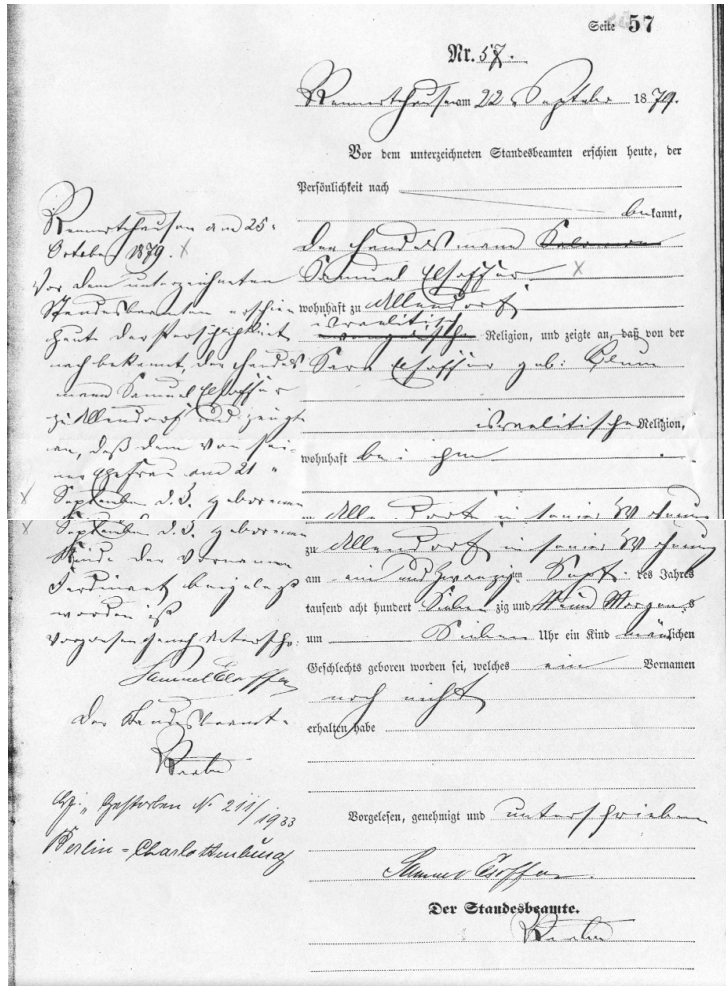 Seite 57
Nr. 57.
Rennertehausen am 22. Septber 1879.
Vor dem unterzeichneten Standesbeamten erschien heute, der
Persönlichkeit nach
bekannt,
der Handelsmann Salomon
Samuel Elsoffer
wohnhaft zu Allendorf
israelitisch
evangelische Religion, und zeigte an, daß von der
Sara Elsoffer geb: Blum
israelitische Religion,
wohnhaft bei ihm
zu Allendorf in seiner Wohnung
am ein und zwanzigsten Sept. des Jahres
tausend acht hundert Sieben zig und Neun Morgens
um Sieben Uhr ein Kind männlichen
Geschlechts geboren worden sei, welches ein Vornamen
noch nicht
erhalten habe
Vorgelesen, genehmigt und unterschrieben
Samuel Elsoffer.
Der Standesbeamte.
Rennertehausen am 25.
October 1879.
Vor dem unterzeichneten
Standesbeamten erschien
heute der Persönlichkeit
nach bekannt, der Handels
mann Samuel Elsoffer
zu Allendorf und zeigte
an, daß dem von sei-
ner Ehefrau am 21
September d. J. geborenen
Kinde der Vornamen
Ferdinand beigelegt
worden ist
Vorgelesen genehmigt unterschr:
Samuel Elsoffer
Der Standesbeamte
Gestorben N. 211/1933
Berlin-Charlottenburg